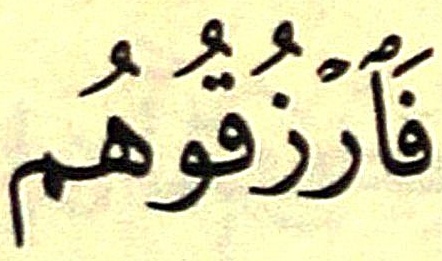 فَٱرْزُقُوهُم